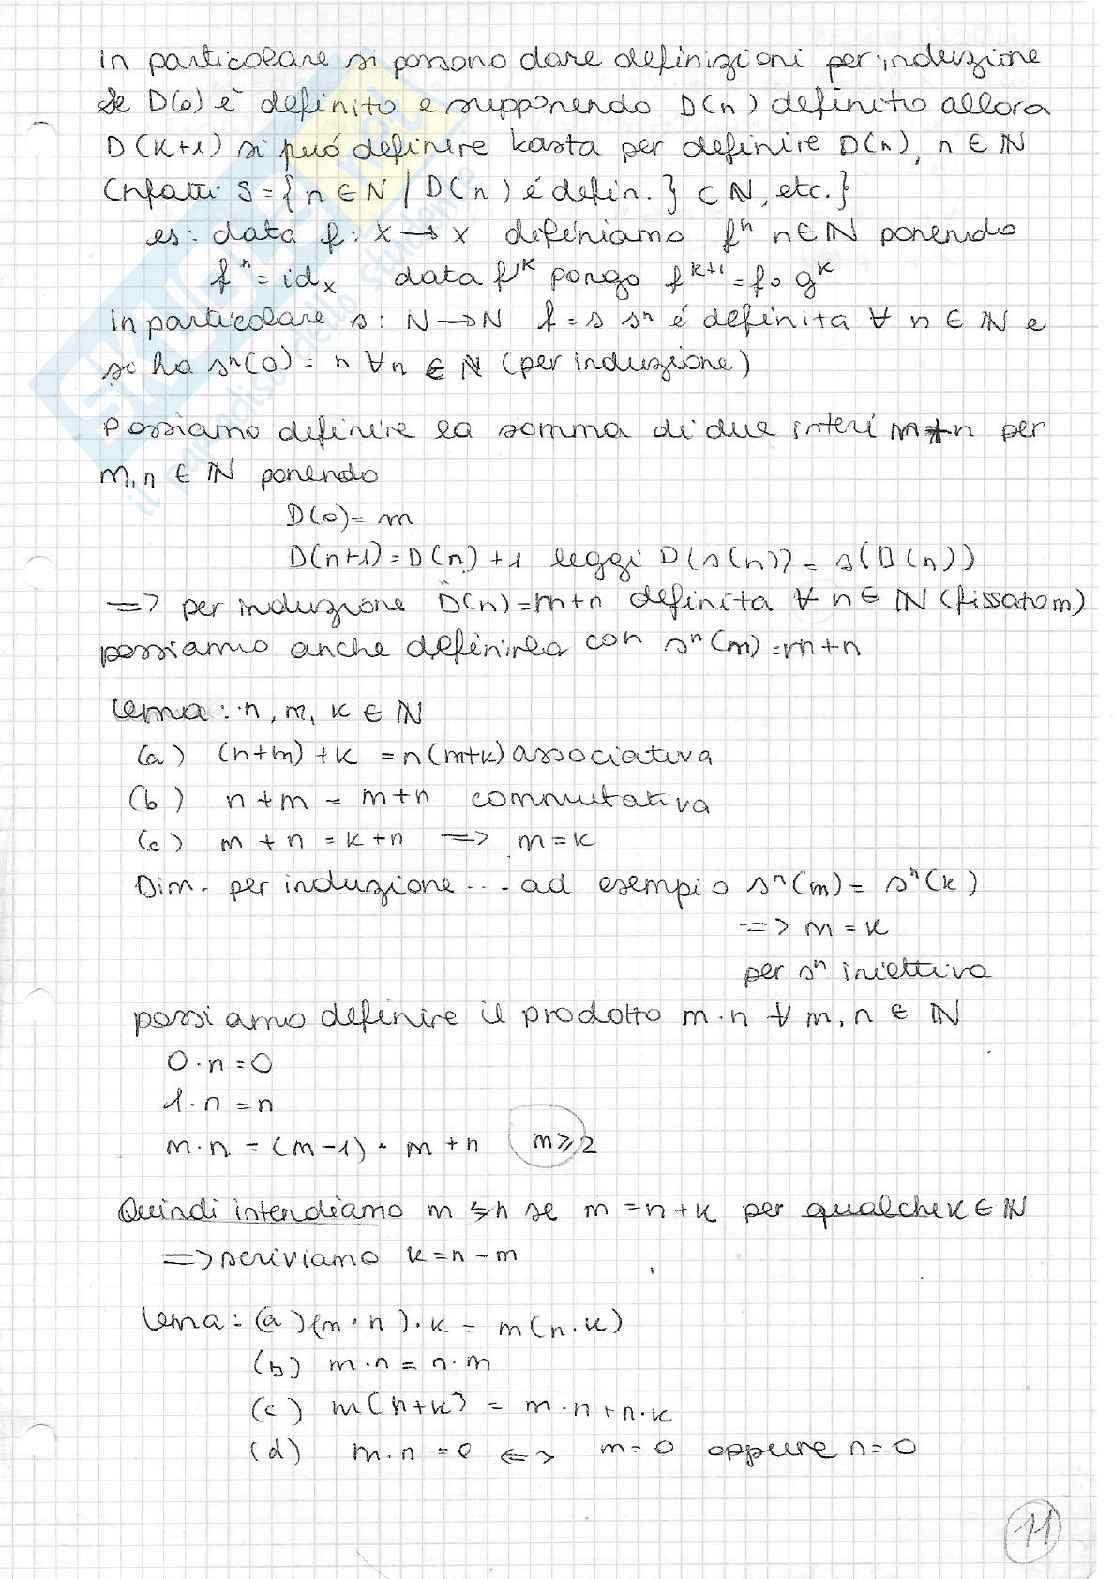 in particolare si possono dare definizioni per induzione
Se D(0) è definito e supponendo D(n) definito allora
D(k+1) si può definire basta per definire D(n), n ∈ ℕ
Infatti S = {n ∈ N / D(n) é defin.} ⊂ ℕ, etc.}
es: data f: X → X definiamo fⁿ n ∈ ℕ ponendo
fⁿ = id_X data fᵏ pongo fᵏ⁺¹ = f∘gᵏ
in particolare s: N → N f = s sⁿ é definita ∀ n ∈ ℕ e
si ha sⁿ(0) = n ∀n ∈ ℕ (per induzione)
Possiamo definire la somma di due interi m+n per
m, n ∈ ℕ ponendo
D(0) = m
D(n+1) = D(n) + 1 leggi D(s(n)) = s(D(n))
=> per induzione D(n) = m+n definita ∀ n ∈ ℕ (fissato m)
possiamo anche definirla con sⁿ(m) = m+n
Lema: n, m, k ∈ ℕ
(a) (n+m) + k = n(m+k) associativa
(b) n + m = m+n commutativa
(c) m + n = k + n => m = k
Dim. per induzione ... ad esempio sⁿ(m) = sⁿ(k)
=> m = k
per sⁿ iniettiva
possiamo definire il prodotto m·n ∀ m, n ∈ ℕ
0·n = 0
1·n = n
m·n = (m-1)·m + n m ⩾ 2
Quindi intendiamo m ≤ n se m = n + k per qualche k ∈ ℕ
=> scriviamo k = n - m
Lema: (a) (m·n)·k = m(n·k)
(b) m·n = n·m
(c) m(n+k) = m·n + n·k
(d) m·n = 0 <=> m = 0 oppure n = 0
11
SKUOLA.net